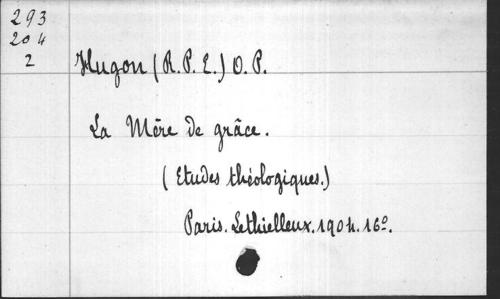 293
204
2
Hugon (R. P. E.) O. P.
La Mère de grâce.
(Etudes théologiques.)
Paris. Lethielleux. 1904. 16º.